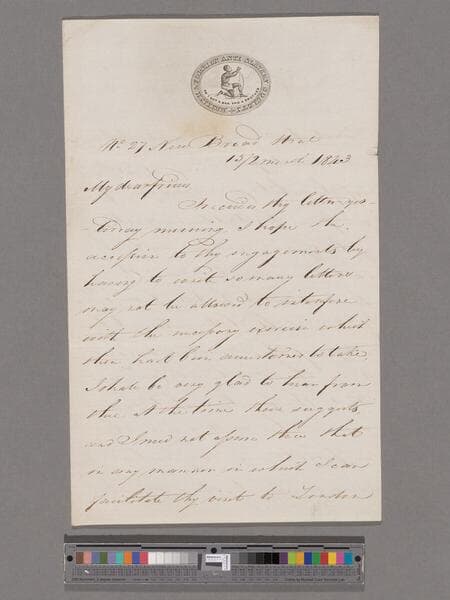 BRITISH AND FOREIGN ANTI-SLAVERY SOCIETY
AM I NOT A MAN AND A BROTHER
No. 27 New Broad Street
15/2 month 1843
My dear friend
I received thy letter yes-
-terday morning. I hope the
accession to thy engagements by
having to write so many letters
may not be allowed to interfere
with the necessary exercise which
thou hast been accustomed to take.
I shall be very glad to hear from
thee at the time thou suggests,
and I need not assure thee that
in any manner in which I can
facilitate thy visit to London